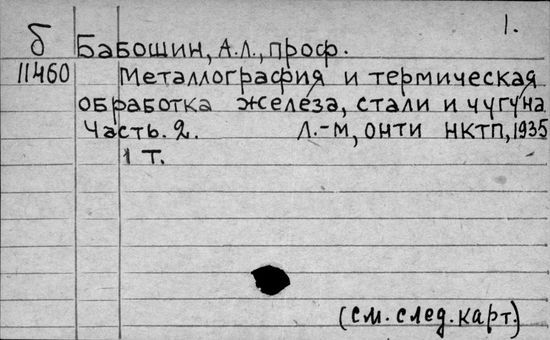 1.
б Бабошин, А.Л., проф.
11460 Металлография и термическая
обработка железа, стали и чугуна
Часть. 2. Л.-М, ОНТИ НКТП, 1935
1 т.
(см. след. карт.)